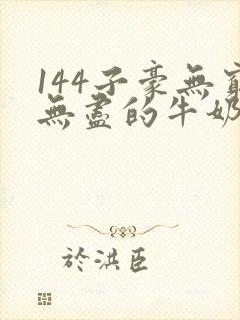 144子豪無窮
無盡的牛奶
於洪臣